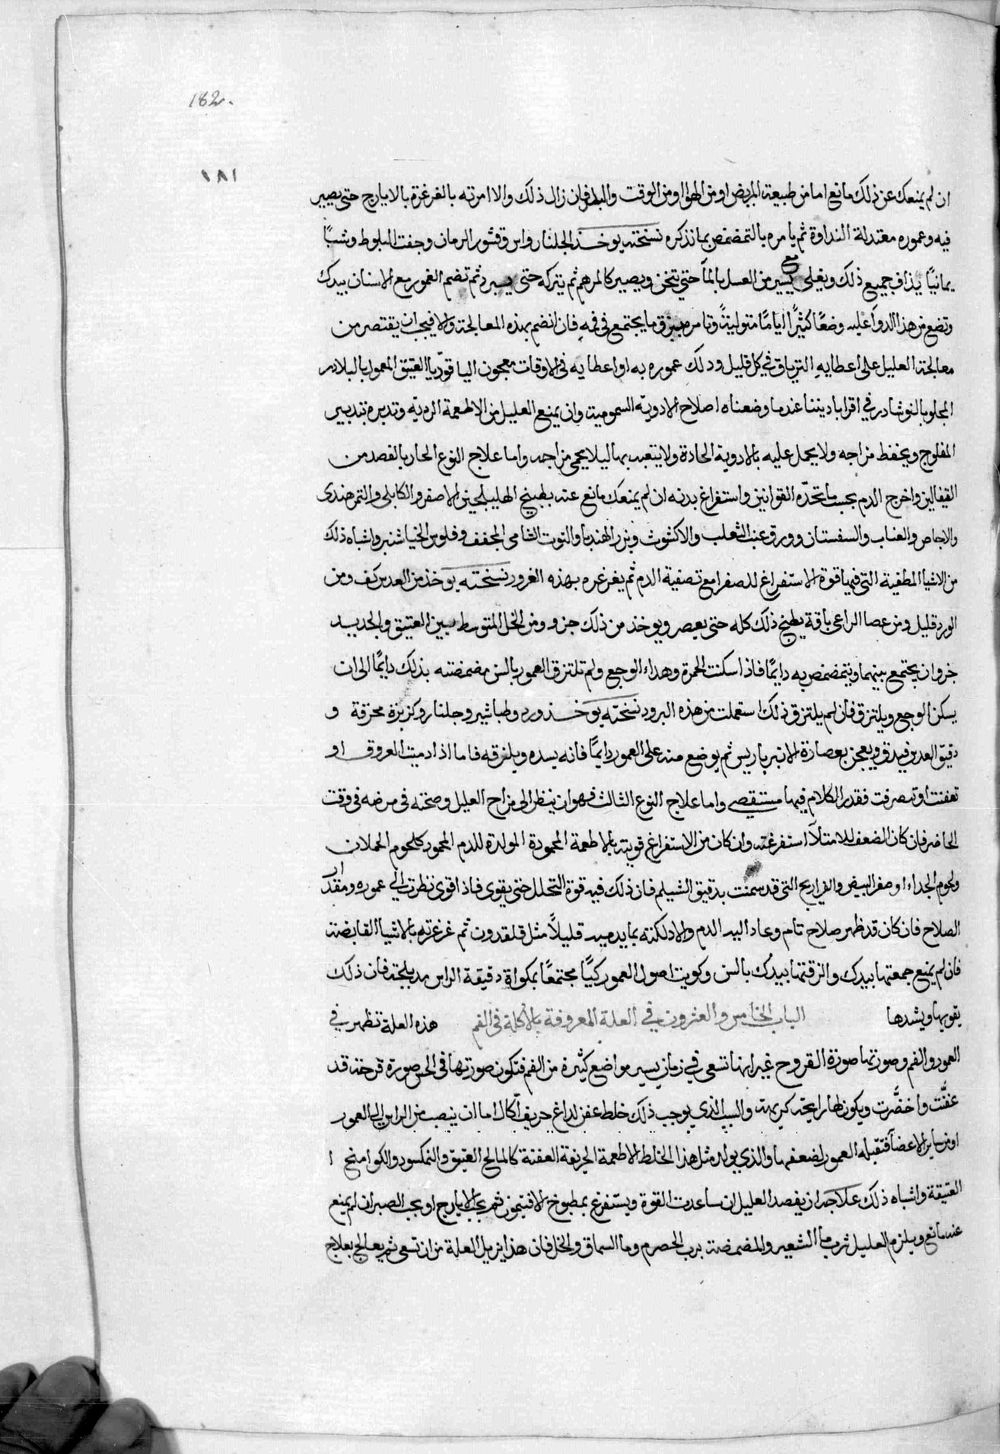 182.
١٨١
ان لم يمنعك عن ذلك مانع اما من طبيعة المريض او من الهوا او من الوقت والبلد فان زال ذلك والا امرته بالغرغرة بالايارج حتى يصير
فيه وعموره معتدلة النداوة ثم يامره بالتمضمض بما نذكره نسخته يوخذ الجلنار واس وقشور الرمان وجفت البلوط وشبًا
يمانيًا يذاف جميع ذلك ويغلى مع يسير من العسل بالمآ حتى يثخن ويصير كالمرهم ثم يتركه حتى يبرد ثم تضم العمور مع الاسنان بيدك
وتضع من هذا الدوآ عليه وضعًا كثيرًا اياما متوالية وتامره يبزق ما يجتمع فى فيه فان انضم بهذه المعالجة والا فيجب ان يقتصر من
معالجة العليل على اعطايه الترياق فى كل قليل ودلك عموره به او اعطايه فى الاوقات معجون الياقوديا العتيق المعمول بالبلادر
المحلو بالنوشادر فى اقراباديننا عندما وضعناه اصلاح الادوية السمومية وان يمنع العليل من الاطعمة الردية وتدبره تدبير
المفلوج ويحفظ مزاجه ولا يحمل عليه بالادوية الحادة ولا يتعبد بها ليلا يحمى مزاجه واما علاج النوع الحار بالفصد من
القيفالين واخرج الدم بحسب ما تحدّه القوانين واستفراغ بدنه ان لم يمنعك مانع عنه بطبيخ الهليلجين الاصفر والكابلى والتمر هندى
والاجاص والعناب والسفستان وورق عنب الثعلب والاكشوث وبزر الهندبا والتوت الشامى المجفف وفلوس الخيارشنبر واشباه ذلك
من الاشيا المطفية التى فيها قوة الاستفراغ للصفرا مع تصفية الدم ثم يغرغره بهذه الغرور نسخته يوخذ من العدس كف ومن
الورد قليل ومن عصا الراعى باقة يطبخ ذلك كله حتى يعصر ويوخذ من ذلك جزو ومن الخل المتوسط بين العتيق والجديد
جزو ان يجتمع بينهما ويتمضمض به دايمًا فاذا سكنت الحمرة وهدا الوجع ولم تلتزق العمور بالسن مضمضته بذلك دايمًا الى ان
يسكن الوجع ويلتزق فان لم يلتزق ذلك استعملت من هذه البرود نسخته يوخذ ورد وطباشير وجلنار وكزبرة محرقة و
دقيق العدس فيدق ويعجن بعصارة الانبرباريس ثم يوضع منه على العمور دايمًا فانه يسده ويلزقه فاما اذا ادميت العروق او
تعفنت او تبصرفت فقد مر الكلام فيها مستقصى واما علاج النوع الثالث فهو ان ينظر الى مزاج العليل وصحته فى مرضه فى وقت
الحاضر فان كان الضعف للامتلآ استفرغته وان كان من الاستفراغ قويته بالاطعمة المحمودة المولدة للدم المحمود كلحوم الحملان
ولحوم الجداء او صفر البيض والفراريج التى قد سمنت بدقيق الشيلم فان ذلك فيه قوة التحلل حتى يقوى فاذا قوى نظرت الى عموره ومقدار
الصلاح فان كان قد ظهر صلاح تام وعاد اليه الدم والا دلكته بما يدميه قليلاً مثل قلقدون ثم غرغرته بالاشيا القابضة
فان لم يمنع جمعتها بيدك والزقتها بيدك بالسن وكويت اصول العمور كيًا مجتمعًا بمكواة دقيقة الراس فان ذلك
يقويها ويشدها الباب الخامس والعشرون فى العلة المعروفة بالاكلة فى الفم هذه العلة تظهر فى
العمور والفم وصورتها صورة القروح غير انها تسعى فى زمان يسير مواضع كثيرة من الفم فتكون صورتها فى الحس صورة قرحة قد
عفنت واخضّرت ويكون لها رايحة كريهة والسبب الذى يوجب ذلك خلط عفن لداغ حريف اكال اما ان ينصب من الراس الى العمور
او من ساير الاعضآ فتقبله العمور لضعفها والذى يولد مثل هذا الخلط الاطعمة الحريفة العفنة كالمالح العتيق والنمكسود والكوامخ ا
العتيقة واشباه ذلك علاجه ان يفصد العليل ان ساعدت القوة ويستفرغ بمطبوخ الافتيمون ثم بحب الايارج او بحب الصبر ان لم يمنع
عنه مانع ويلزم العليل شرب ما الشعير والمضمضة برب الحصرم وما السماق والخل فان هذا يزيل العلة من ان تسعى ثم يعالج بعلاج